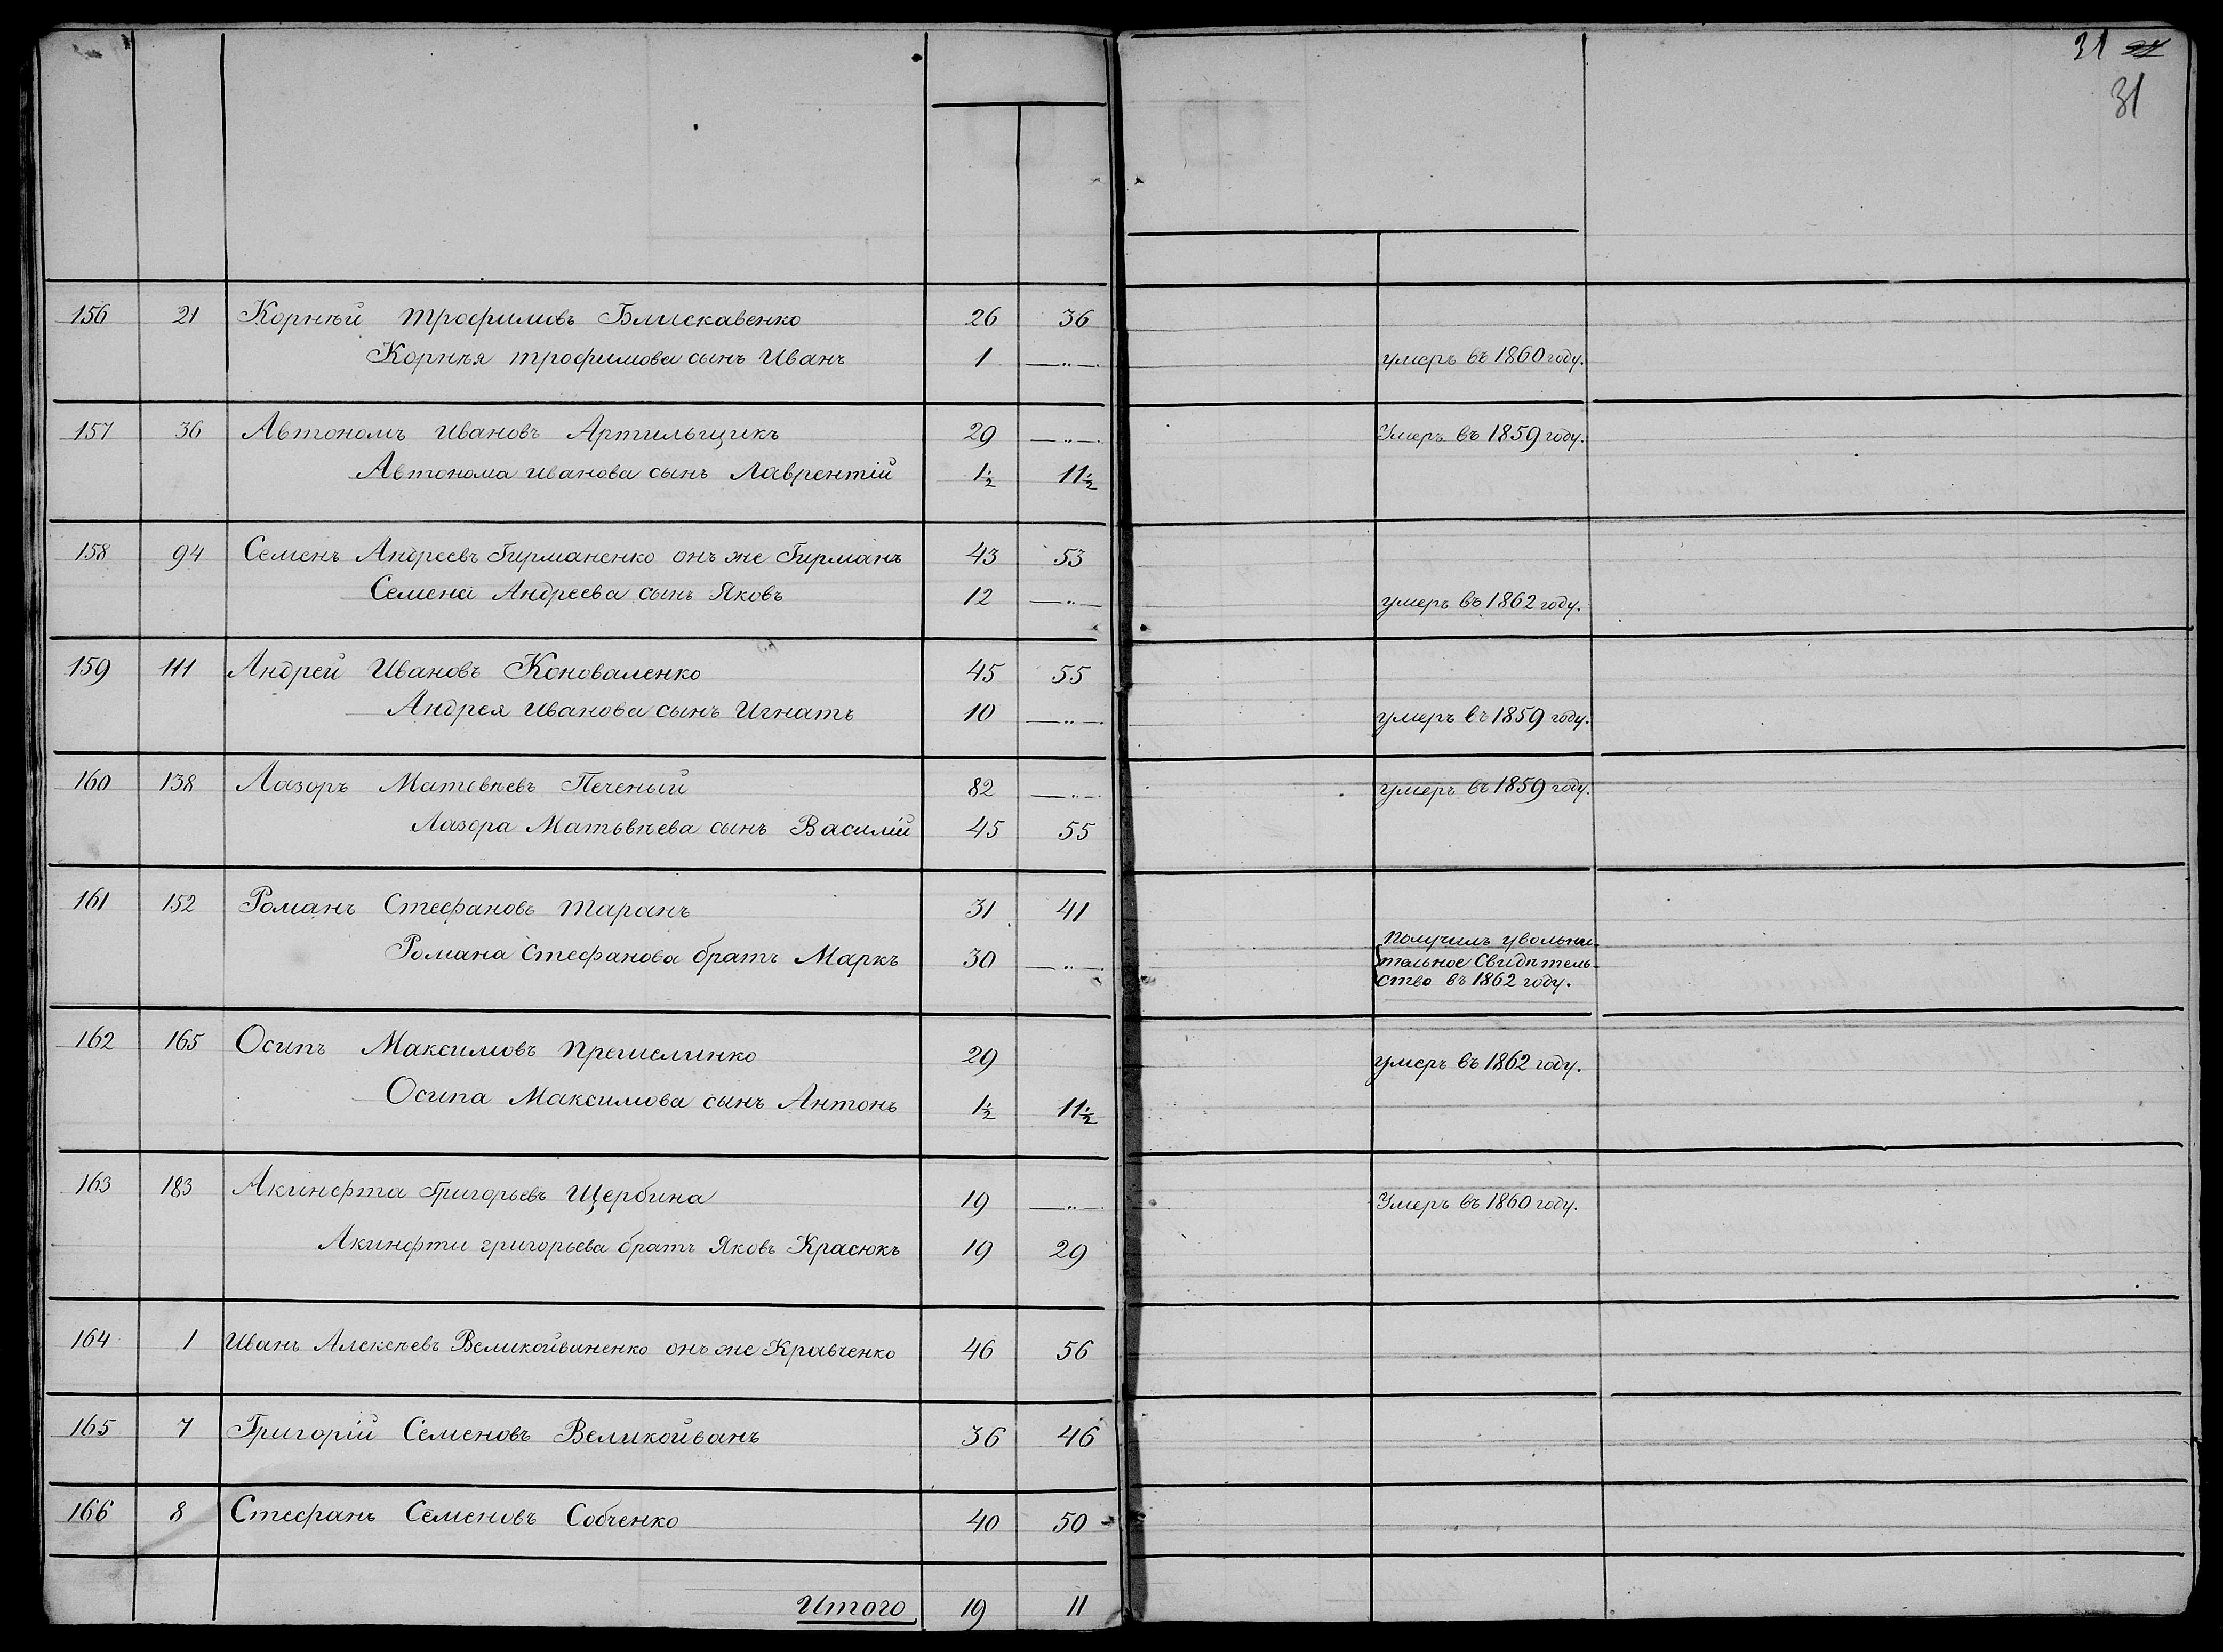 31 24
31
156 21 Корнѣй Трофимовъ Блискавенко 26 36
Корнѣя Трофимова сынъ Иванъ 1 —„— умеръ въ 1860 году.
157 36 Автономъ Ивановъ Артильщикъ 29 —„— Умеръ въ 1859 году.
Автонома Иванова сынъ Лаврентій 1½ 11½
158 94 Семенъ Андреевъ Гирманенко онъ же Гирманъ 43 53
Семена Андреева сынъ Яковъ 12 —„— умеръ въ 1862 году.
159 111 Андрей Ивановъ Коноваленко 45 55
Андрея Иванова сынъ Игнатъ 10 —„— умеръ въ 1859 году.
160 138 Лазоръ Матвѣевъ Печеный 82 —„— умеръ въ 1859 году.
Лазора Матьвѣева сынъ Василій 45 55
161 152 Романъ Стефановъ Таранъ 31 41
Романа Стефанова братъ Маркъ 30 —„— Получилъ увольни-
тельное Свидѣтель-
ство въ 1862 году.
162 165 Осипъ Максимовъ 29 умеръ въ 1862 году.
Осипа Максимова сынъ Антонъ 1½ 11½
163 183 Акинфта Григорьевъ Щербина 19 —„— Умеръ въ 1860 году.
Акинфти Григорьева братъ Яковъ Красюкъ 19 29
164 1 Иванъ Алексѣевъ Великойваненко онъ же Кравченко 46 56
165 7 Григорій Семеновъ Великойванъ 36 46
166 8 Стефанъ Семеновъ Собченко 40 50
Итого 19 11